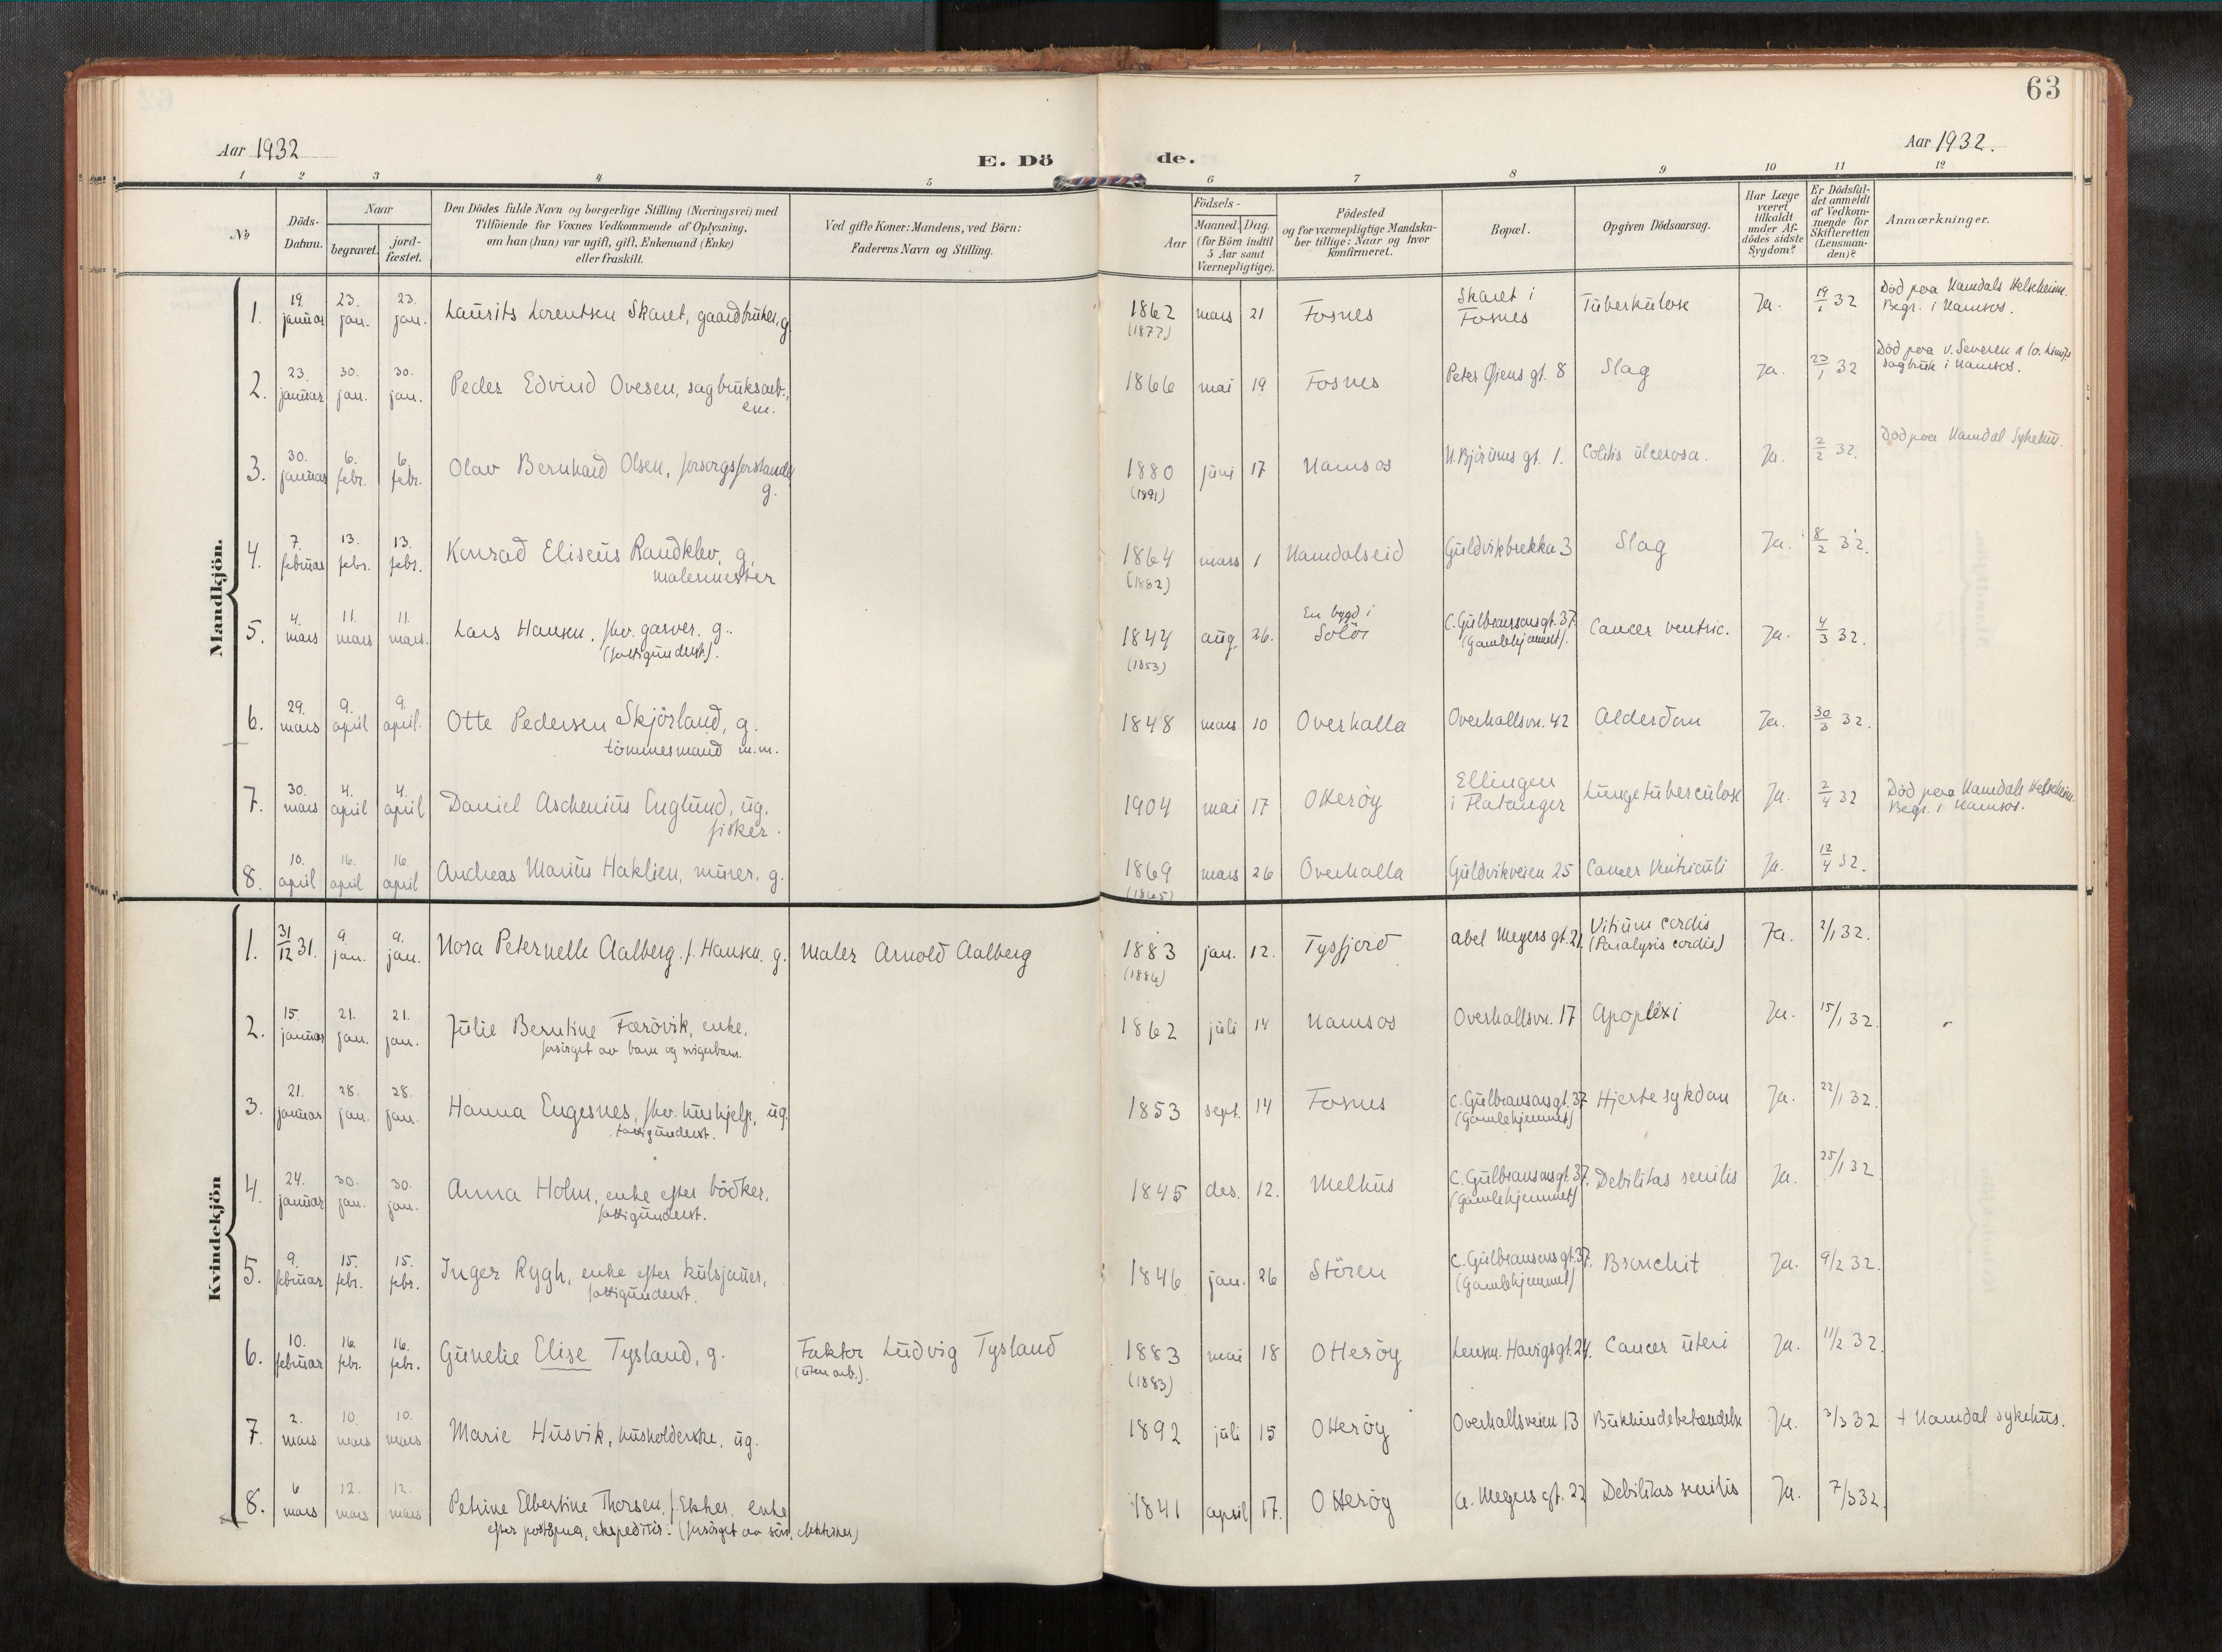 63
Aar 1932
E. Döde.
Aar 1932.
1 2 3 4 5 6 7 8 9 10 11 12
№
Döds-Datum.
Naar
begravet.
jord-fæstet.
Den Dödes fulde Navn og borgerlige Stilling (Næringsvei) med
Tilföiende for Voxnes Vedkommende af Oplysning,
om han (hun) var ugift, gift, Enkemand (Enke)
eller fraskilt.
Ved gifte Koner: Mandens, ved Börn:
Faderens Navn og Stilling.
Födsels-
Aar
Maaned. Dag.
(for Börn indtil
5 Aar samt
Værnepligtige).
Födested
og for værnepligtige Mandska-
ber tillige: Naar og hvor
konfirmeret.
Bopæl.
Opgiven Dödsaarsag.
Har Læge
været
tilkaldt
under Af-
dödes sidste
Sygdom?
Er Dödsfal-
det anmeldt
af Vedkom-
mende for
Skifteretten
(Lensman-
den)?
Anmærkninger.
Mandkjön.
1. 19. januar 23. jan. 23. jan. Laurits Lorentsen Skaret, gaardbruker, g. 1862 mars 21 Fosnes Skaret i Fosnes Tuberkulose Ja. 19/1 32 Död paa Namdals Helseheim. Begr. i Namsos.
(1877)
2. 23. januar 30. jan. 30. jan. Peder Edvind Ovesen, sagbruksarb., em. 1866 mai 19 Fosnes Peter Øiens gt. 8 Slag Ja. 23/1 32 Död paa v. Severen & Co. sagbruk i Namsos.
3. 30. januar 6. febr. 6. febr. Olav Bernhard Olsen, forsorgsforstander g. 1880 juni 17 Namsos N. Bjørums gt. 1. Colitis ulcerosa. Ja. 2/2 32. Död paa Namdal Sykehus.
(1891)
4. 7. februar 13. febr. 13. febr. Konrad Eliseus Randklev, g. malermester 1864 mars 1 Namdalseid Guldvikbrekka 3 Slag Ja. 8/2 32.
(1882)
5. 4. mars 11. mars 11. mars. Lars Hansen, fhv. garver. g. (fattigunderst.). 1844 aug. 26. En bygd i Solör C. Gulbransons gt. 37 (Gamlehjemmet). Cancer ventric. Ja. 4/3 32.
(1853)
6. 29. mars 9. april 9. april. Otte Pedersen Skjörland, g. tömmermand m.m. 1848 mars 10 Overhalla Overhallsvn. 42 Alderdom Ja. 30/3 32.
7. 30. mars 4. april 4. april Daniel Aschenius Englund, ug. fisker. 1904 mai 17 Otterøy Ellingen i Flatanger Lungetuberculose Ja. 2/4 32 Död paa Namdals Helseheim. Begr. i Namsos.
8. 10. april 16. april 16. april Andreas Marius Haklien, murer, g. 1869 mars 26 Overhalla Guldvikveien 25 Cancer Ventriculi Ja. 12/4 32.
(1865)
Kvindekjön
1. 31/12 31. 9. jan. 9. jan. Nora Peternelle Aalberg f. Hansen. g. Maler Arnold Aalberg 1883 jan. 12. Tysfjord Abel Meyers gt. 21. Vitium cordis (Paralysis cordis) Ja. 2/1 32.
(1886)
2. 15. januar 21. jan. 21. jan. Julie Berntine Færövik, enke, forsörget av barn og svigerbarn. 1862 juli 14 Namsos Overhallsvn. 17 Apoplexi Ja. 15/1 32.
3. 21. januar 28. jan. 28. jan. Hanna Engesnes, fhv. hushjelp, ug. fattigunderst. 1853 sept. 14 Fosnes C. Gulbransons gt. 37 (Gamlehjemmet) Hjertesykdom Ja. 22/1 32.
4. 24. januar 30. jan. 30. jan. Anna Holm, enke efter bödker, fattigunderst. 1845 des. 12. Melhus C. Gulbransons gt. 37. (Gamlehjemmet) Debilitas senilis Ja. 25/1 32
5. 9. februar 15. febr. 15. febr. Inger Rygh, enke efter kulsjauer, fattigunderst. 1846 jan. 26 Stören C. Gulbransons gt. 37. (Gamlehjemmet) Bronchit Ja. 9/2 32.
6. 10. februar 16. febr. 16. febr. Gunelie Elise Tysland, g. Faktor Ludvig Tysland (uten arb.). 1883 mai 18 Otterøy Lensm. Havigs gt. 24. Cancer uteri Ja. 11/2 32.
(1883)
7. 2. mars 10. mars 10. mars Marie Husvik, husholderske, ug. 1892 juli 15 Otterøy Overhallsveien 13 Bukhindebetændelse Ja. 3/3 32 + Namdal sykehus.
8. 6 mars 12. mars 12. mars Petrine Elbertine Thorsen, f. Ekker. enke efter postaapner, ekspeditör. (forsörget av sön, elektriker) 1841 april 17. Otterøy A. Meyers gt. 22 Debilitas senilis Ja. 7/3 32.